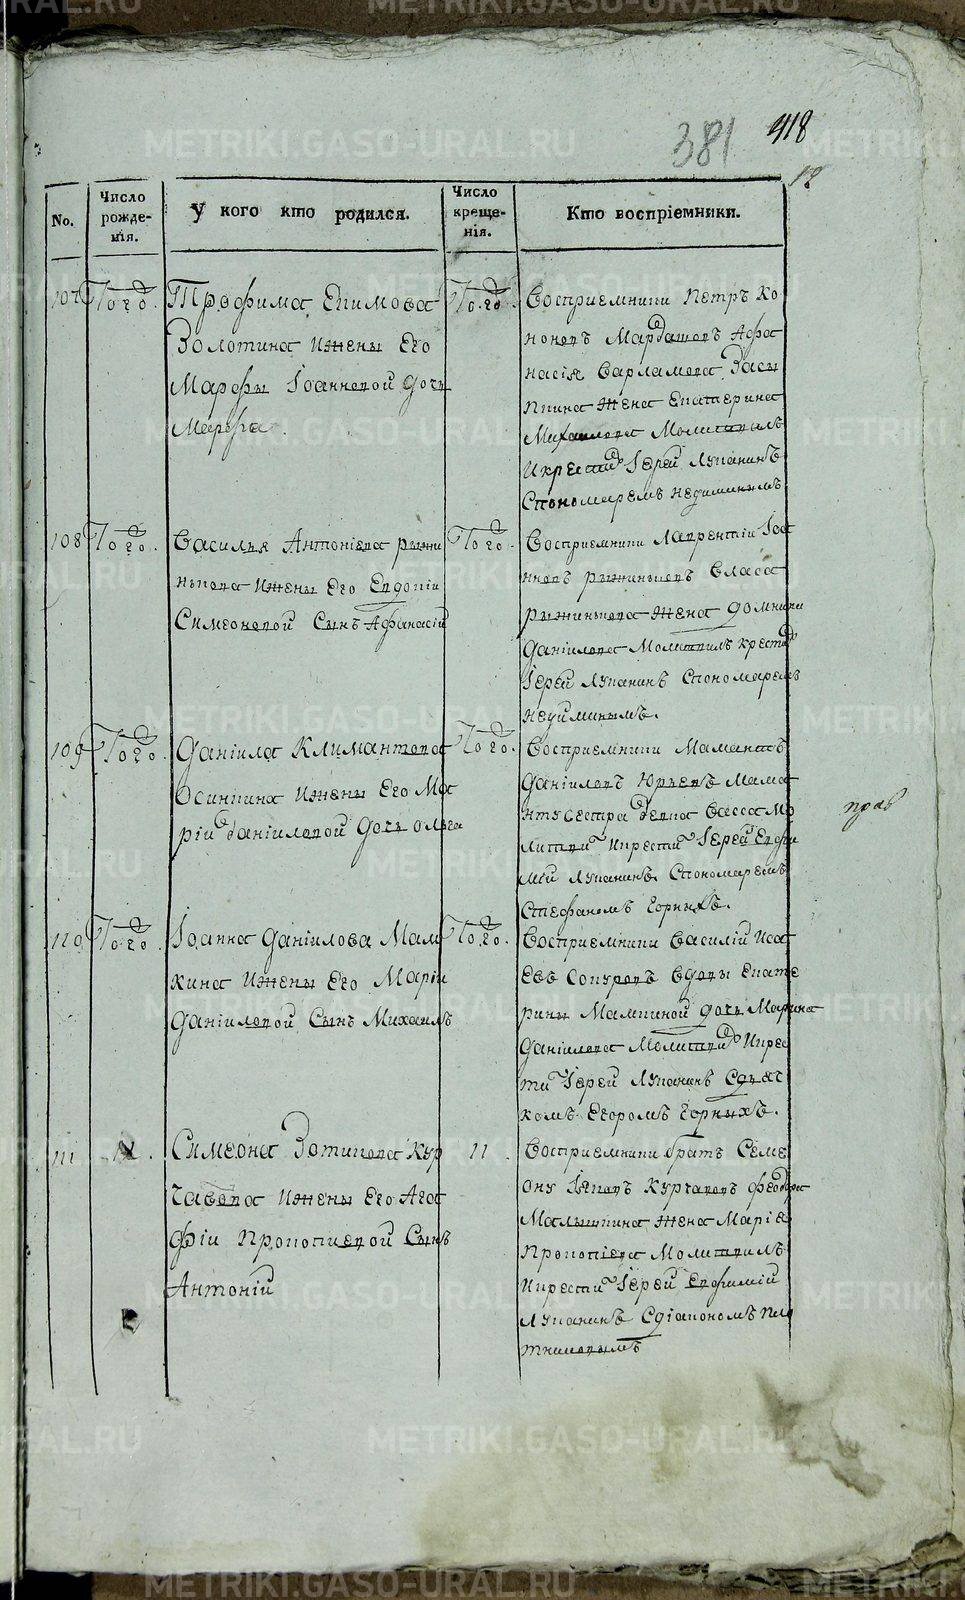 381 418
No.
Число рожде-нія.
У кого кто родился.
Число креще-нія.
Кто воспріемники.
107 Того. Трофима Екимова
Золотина и жены Его
Марфы Іоанновой дочь
Марфа.
Того. Восприемники Петръ Ко
ноновъ Мардашовъ Афа
насія Варламова Засы
пкина жена Екатерина
Михаилова Молитвилъ
и крестил Іерей Лукан нъ
Спономаремъ недиминымъ
108 Того. Василья Антоніева рыжи
нькова и жены Его Евдокіи
Симеоновой Сынъ Афанасій
Того. Восприемники Лаврентій Іоа
нновъ рыжиньковъ Власа
рыжинькова жена домники
Даніилова Молитвилъ крестил
Іерей Луканинъ Спономаремъ
недиминымъ.
109 Того. Даніила Климантова
Осинкина и жены Его Ма
ріи даніиловой дочь ольга
Того. Восприемники Мамантъ
Даніиловъ Юрьевъ Мама
нту сестра девка васса мо
литвил и крестил Іерей Евфи
мій Луканинъ Спономаремъ
Стефаномъ Горныхъ.
прав
110 Того. Іоанна Даніилова Мам
кина и жены Его Маріи
Даніиловой Сынъ Михаилъ
Того. Восприемники Василій Иса
евъ Сокуровъ вдовы Екате
рины Мамкиной дочь Марина
Даніилова Молитвил и крес
тил Іерей Луканинъ Сдьяч
комъ Егоромъ Горныхъ.
111 11. Симеона Зотикова Кур
чавова и жены Его Ага
фіи Прокопиевой Сынъ
Антоній
11. Восприемники братъ Семе
ону Іяковъ Курчавовъ Феодора
Малышкина жена Маріа
Прокопіева Молитвилъ
и крестил Іерей Евфимій
Луканинъ Сдіакономъ Пло
тниковымъ